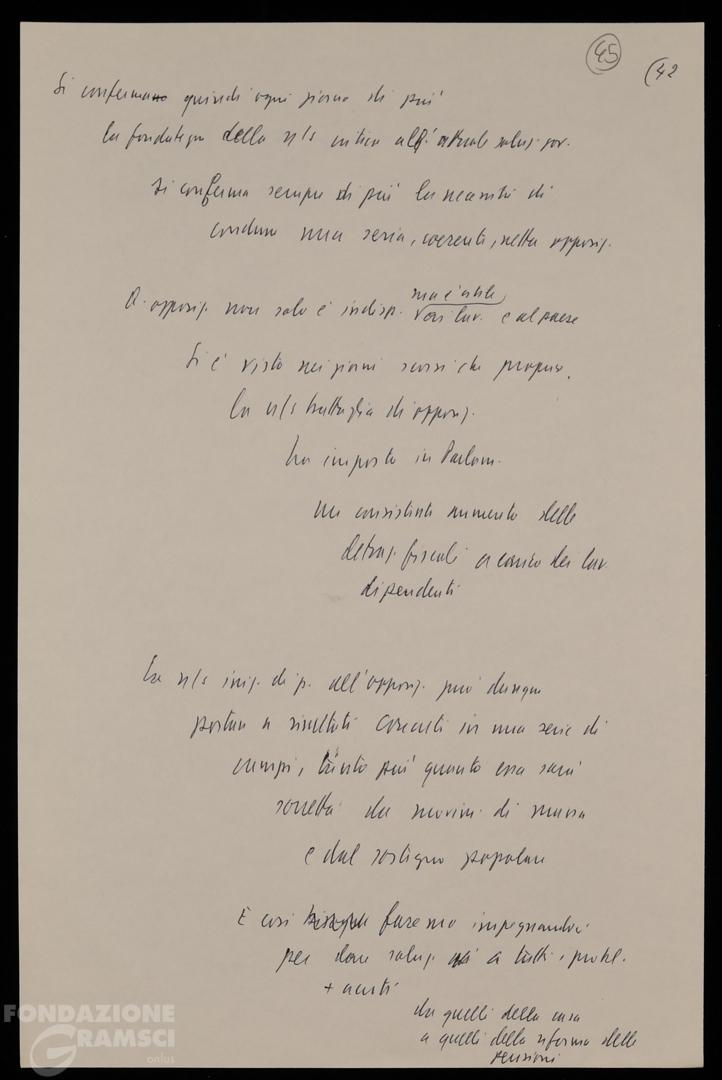 45
(42
Si confermano quindi ogni giorno di più
la fondatezza della n/s critica all'attuale soluz. gov.
Si conferma sempre di più la necessità di
condurre una seria, coerente, netta opposiz.
opposiz. non solo è indisp. ma è utile
ai lav. e al paese
Si è visto nei giorni scorsi che proprio
la n/s battaglia di opposiz.
ha imposto in Parlam.
un consistente aumento delle
detraz. fiscali a carico dei lav.
dipendenti
La n/s iniz. di p. all'opposiz. può dunque
portare a risultati concreti in una serie di
campi, tanto più quanto essa sarà
sorretta da movim. di massa
e dal sostegno popolare
E così faremo impegnandoci
per dare soluz. a tutti i probl.
+ acuti
da quelli della casa
a quelli della riforma delle
pensioni
FONDAZIONE
GRAMSCI
onlus